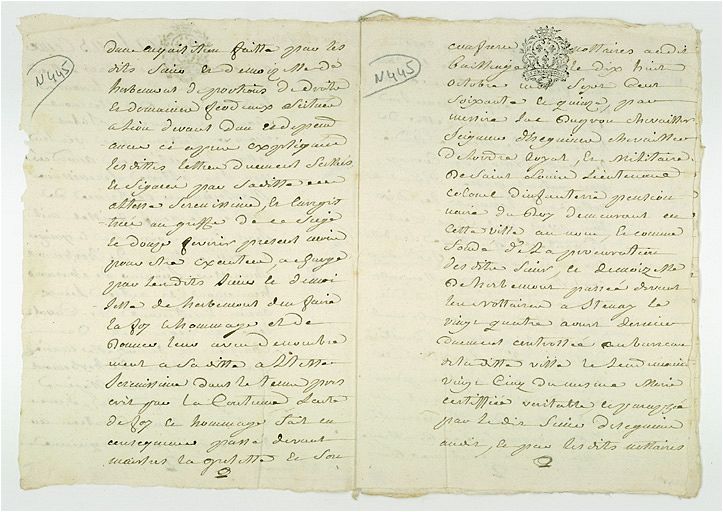 N 445
dits Sieur et demoiselle de
herbemont de portions de droits
et domaines feodaux scitués
a lion devant Dun et depend
ances cy apres expliquées
lesdittes lettres duement Scellées
et Signées par Saditte
altesse Serenissime, et Enregis
trées au greffe de ce Siege
le douze fevrier present mois
pour etre Executées a charge
par lesdits Sieur et demoi
selle de herbemont d'en faire
la foy et hommage et de
donner leur aveu denombre
ment a Saditte altesse
Serenissime dans le tems pres
crit par la Coutume Lacte
de foy et hommage fait en
consequence passé devant
maitres la grelette et Son
N 445
confrere nottaires
le dix huit
octobre mil Sept Cent
soixante et quinze, par
messire Luc Dugrou chevallier
Seigneur chevallier
de Lordre royal et Militaire
de Saint Louis Lieutenant
colonel d'infanterie pension
naire du Roy demeurant en
cette ville au nom, et comme
fondé de La procuration
desdits Sieur, et demoiselle
de herbemont passée devant
les nottaires a Stenay le
vingt quatre aoust dernier
duement controllée au bureau
de laditte ville le Lendemain
vingt Cinq du mesme Mois
certiffiée veritable et paraphée
par ledit Sieur
audit, et par lesdits nottaires